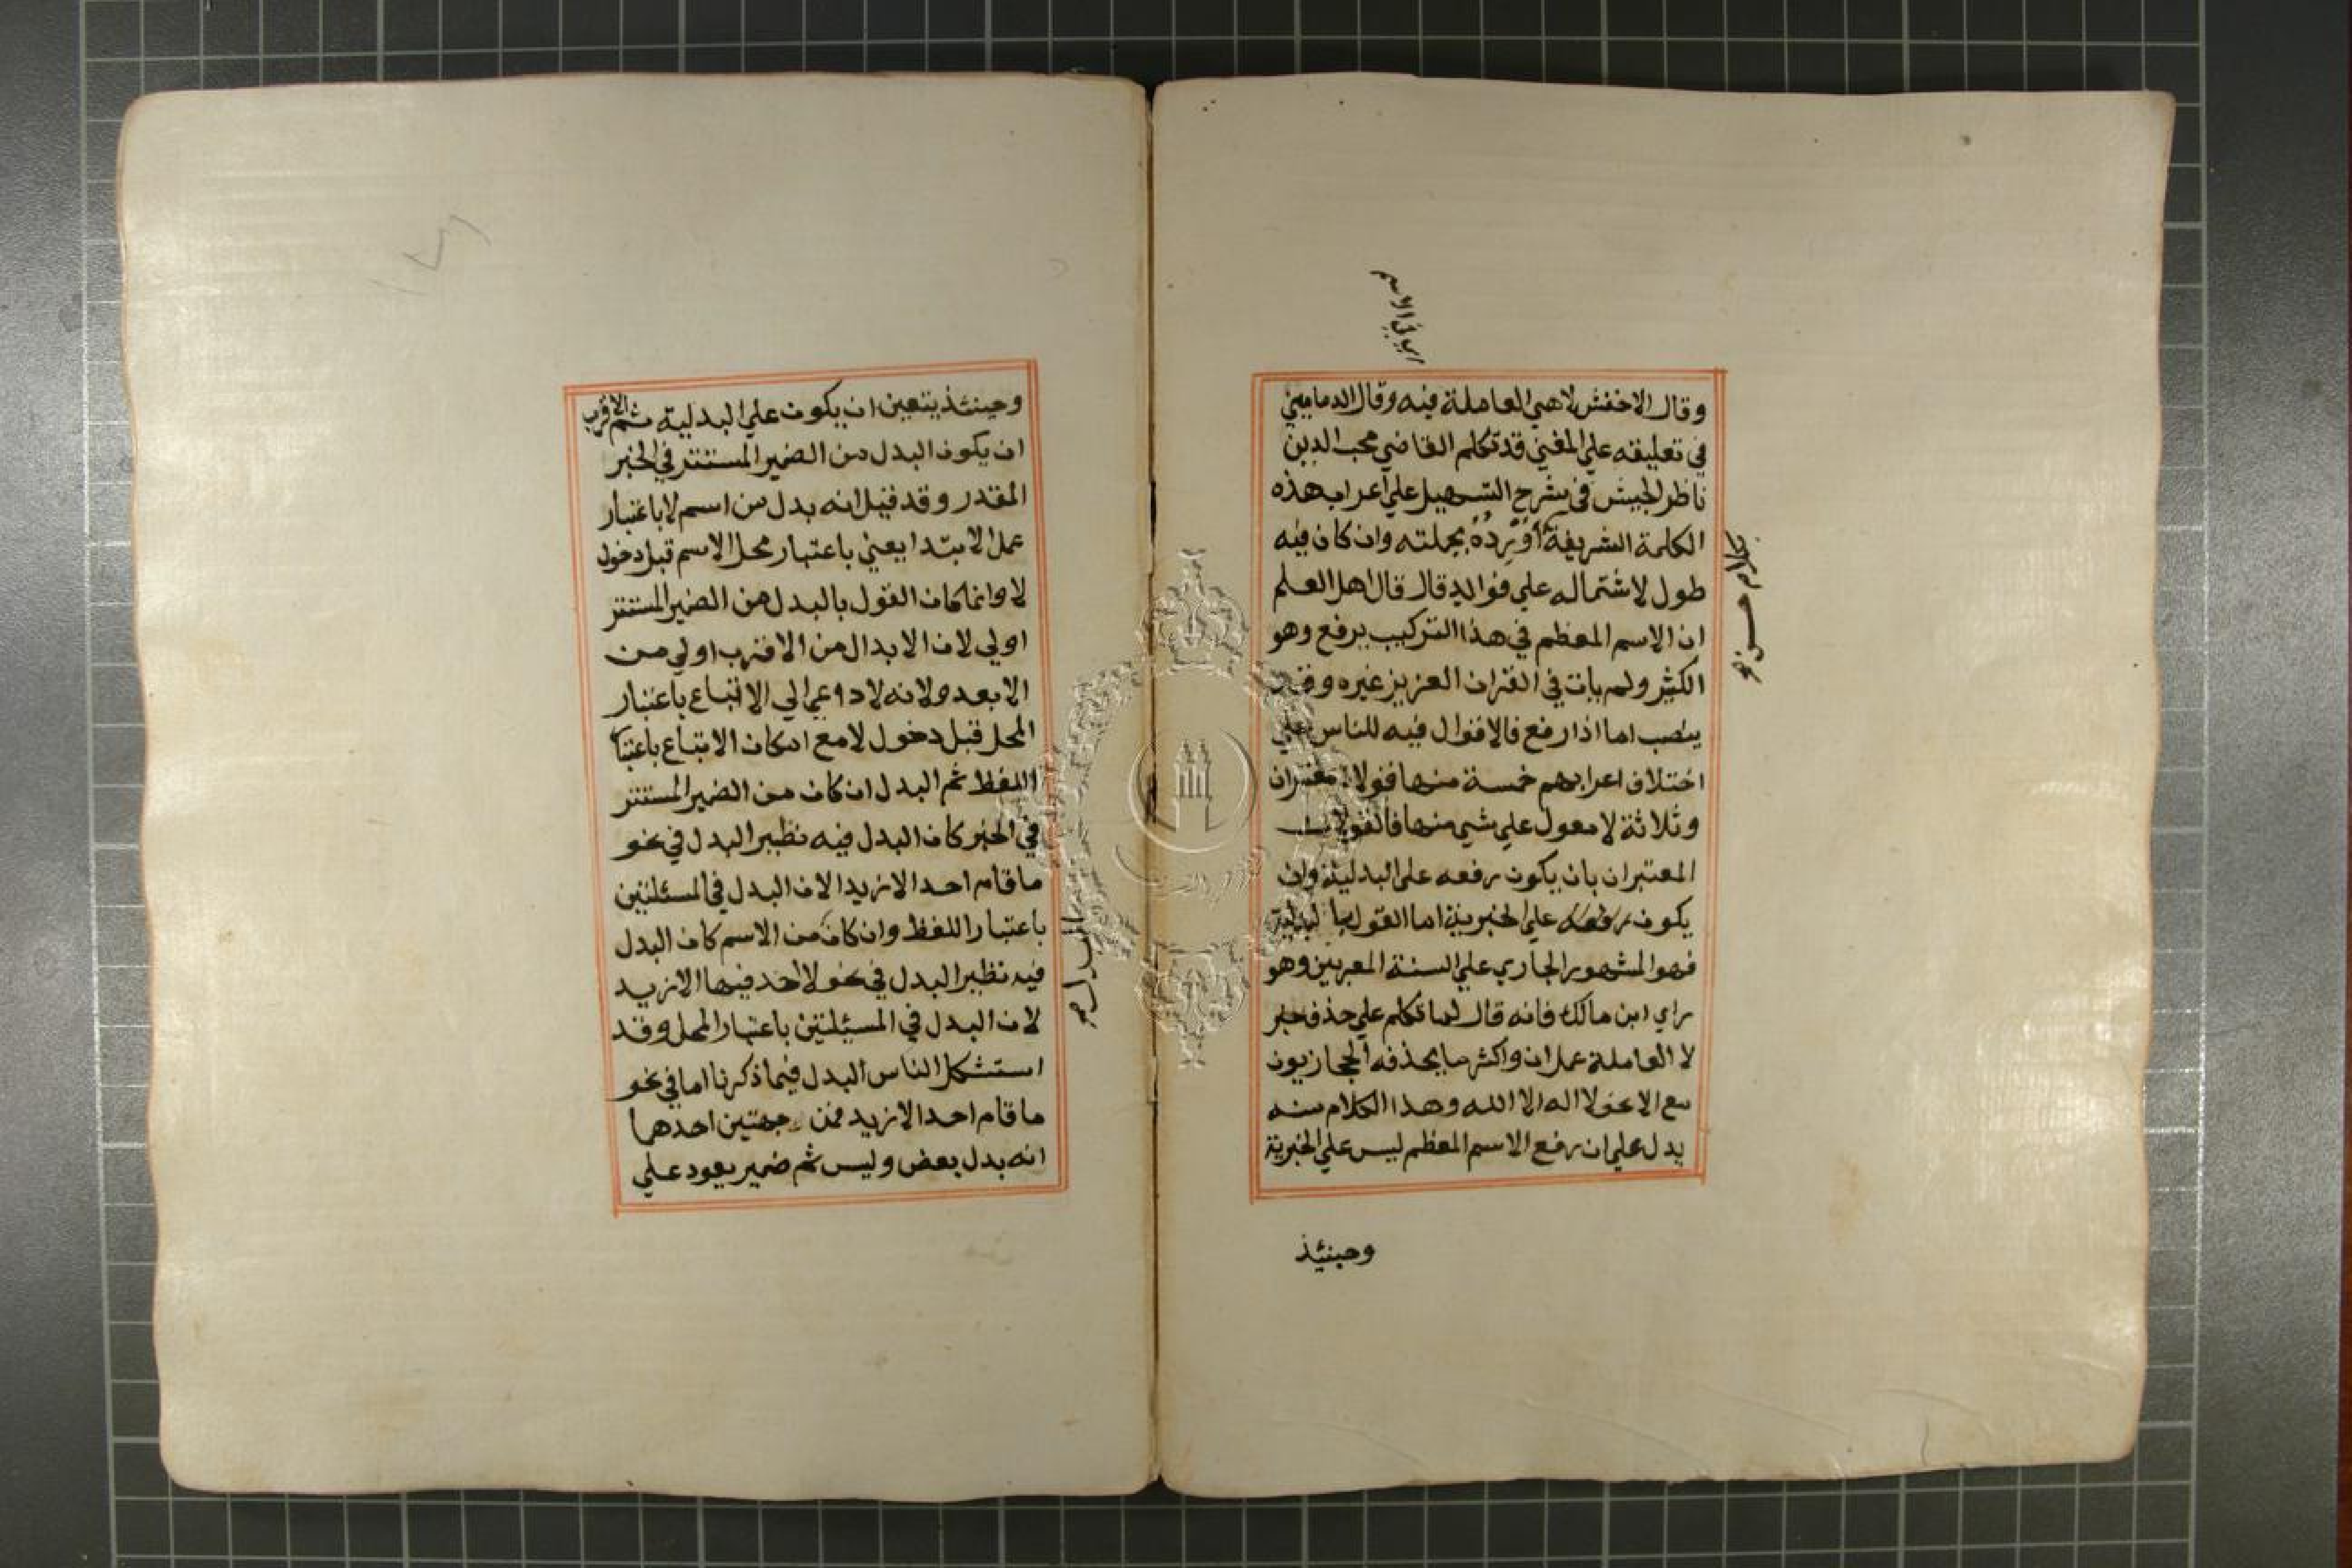 اي في الاسم
وقال الاخفش لا هي العاملة فيه وقال الدماميني
في تعليقه علي المغني قد تكلم القاضي محب الدين
ناظر الجيش في شرح التسهيل علي اعراب هذه
الكلمة الشريفة أُورِدُهُ بجملته وان كان فيه
طول لاشتماله علي فوائد قال قال اهل العلم
ان الاسم المعظم في هذا التركيب يرفع وهو
الكثير ولم يات في القران العزيز غيره وقد
ينصب اما اذا رفع فالاقوال فيه للناس علي
اختلاف اعرابهم خمسة منها قولان معتبران
وثلاثة لا معول علي شي منها فالقولان
المعتبران بان يكون رفعه علي البدلية وان
يكون رفعه علي الخبرية اما القول بالبدلية
فهو المشهور الجاري علي السنة المعربين وهو
راي ابن مالك فانه قال لما تكلم علي حذف خبر
لا العاملة عمل ان واكثر ما يحذفه الحجازيون
مع الا نحو لا اله الا الله وهذا الكلام منه
يدل علي ان رفع الاسم المعظم ليس علي الخبرية
وحينئذ
وحينئذ يتعين ان يكون علي البدلية ثم الاقرب
ان يكون البدل من الضمير المستتر في الخبر
المقدر وقد قيل انه بدل من اسم لا باعتبار
عمل الابتدا يعني باعتبار محل الاسم قبل دخول
لا وانما كان القول بالبدل من الضمير المستتر
اولي لان الابدال من الاقرب اولي من
الابعد ولانه لا داعي الي الاتباع باعتبار
المحل قبل دخول لا مع امكان الاتباع باعتبا
اللفظ ثم البدل ان كان من الضمير المستتر
في الخبر كان البدل فيه نظير البدل في نحو
ما قام احد الا زيد الان البدل في المسئلتين
باعتبار اللفظ وان كان من الاسم كان البدل
فيه نظير البدل في نحو لا احد فيها الا زيد
لان البدل في المسئلتين باعتبار المحل وقد
استشكل الناس البدل فيما ذكرنا اما في نحو
ما قام احد الا زيد فمن جهتين احدهما
انه بدل بعض وليس ثم ضمير يعود علي